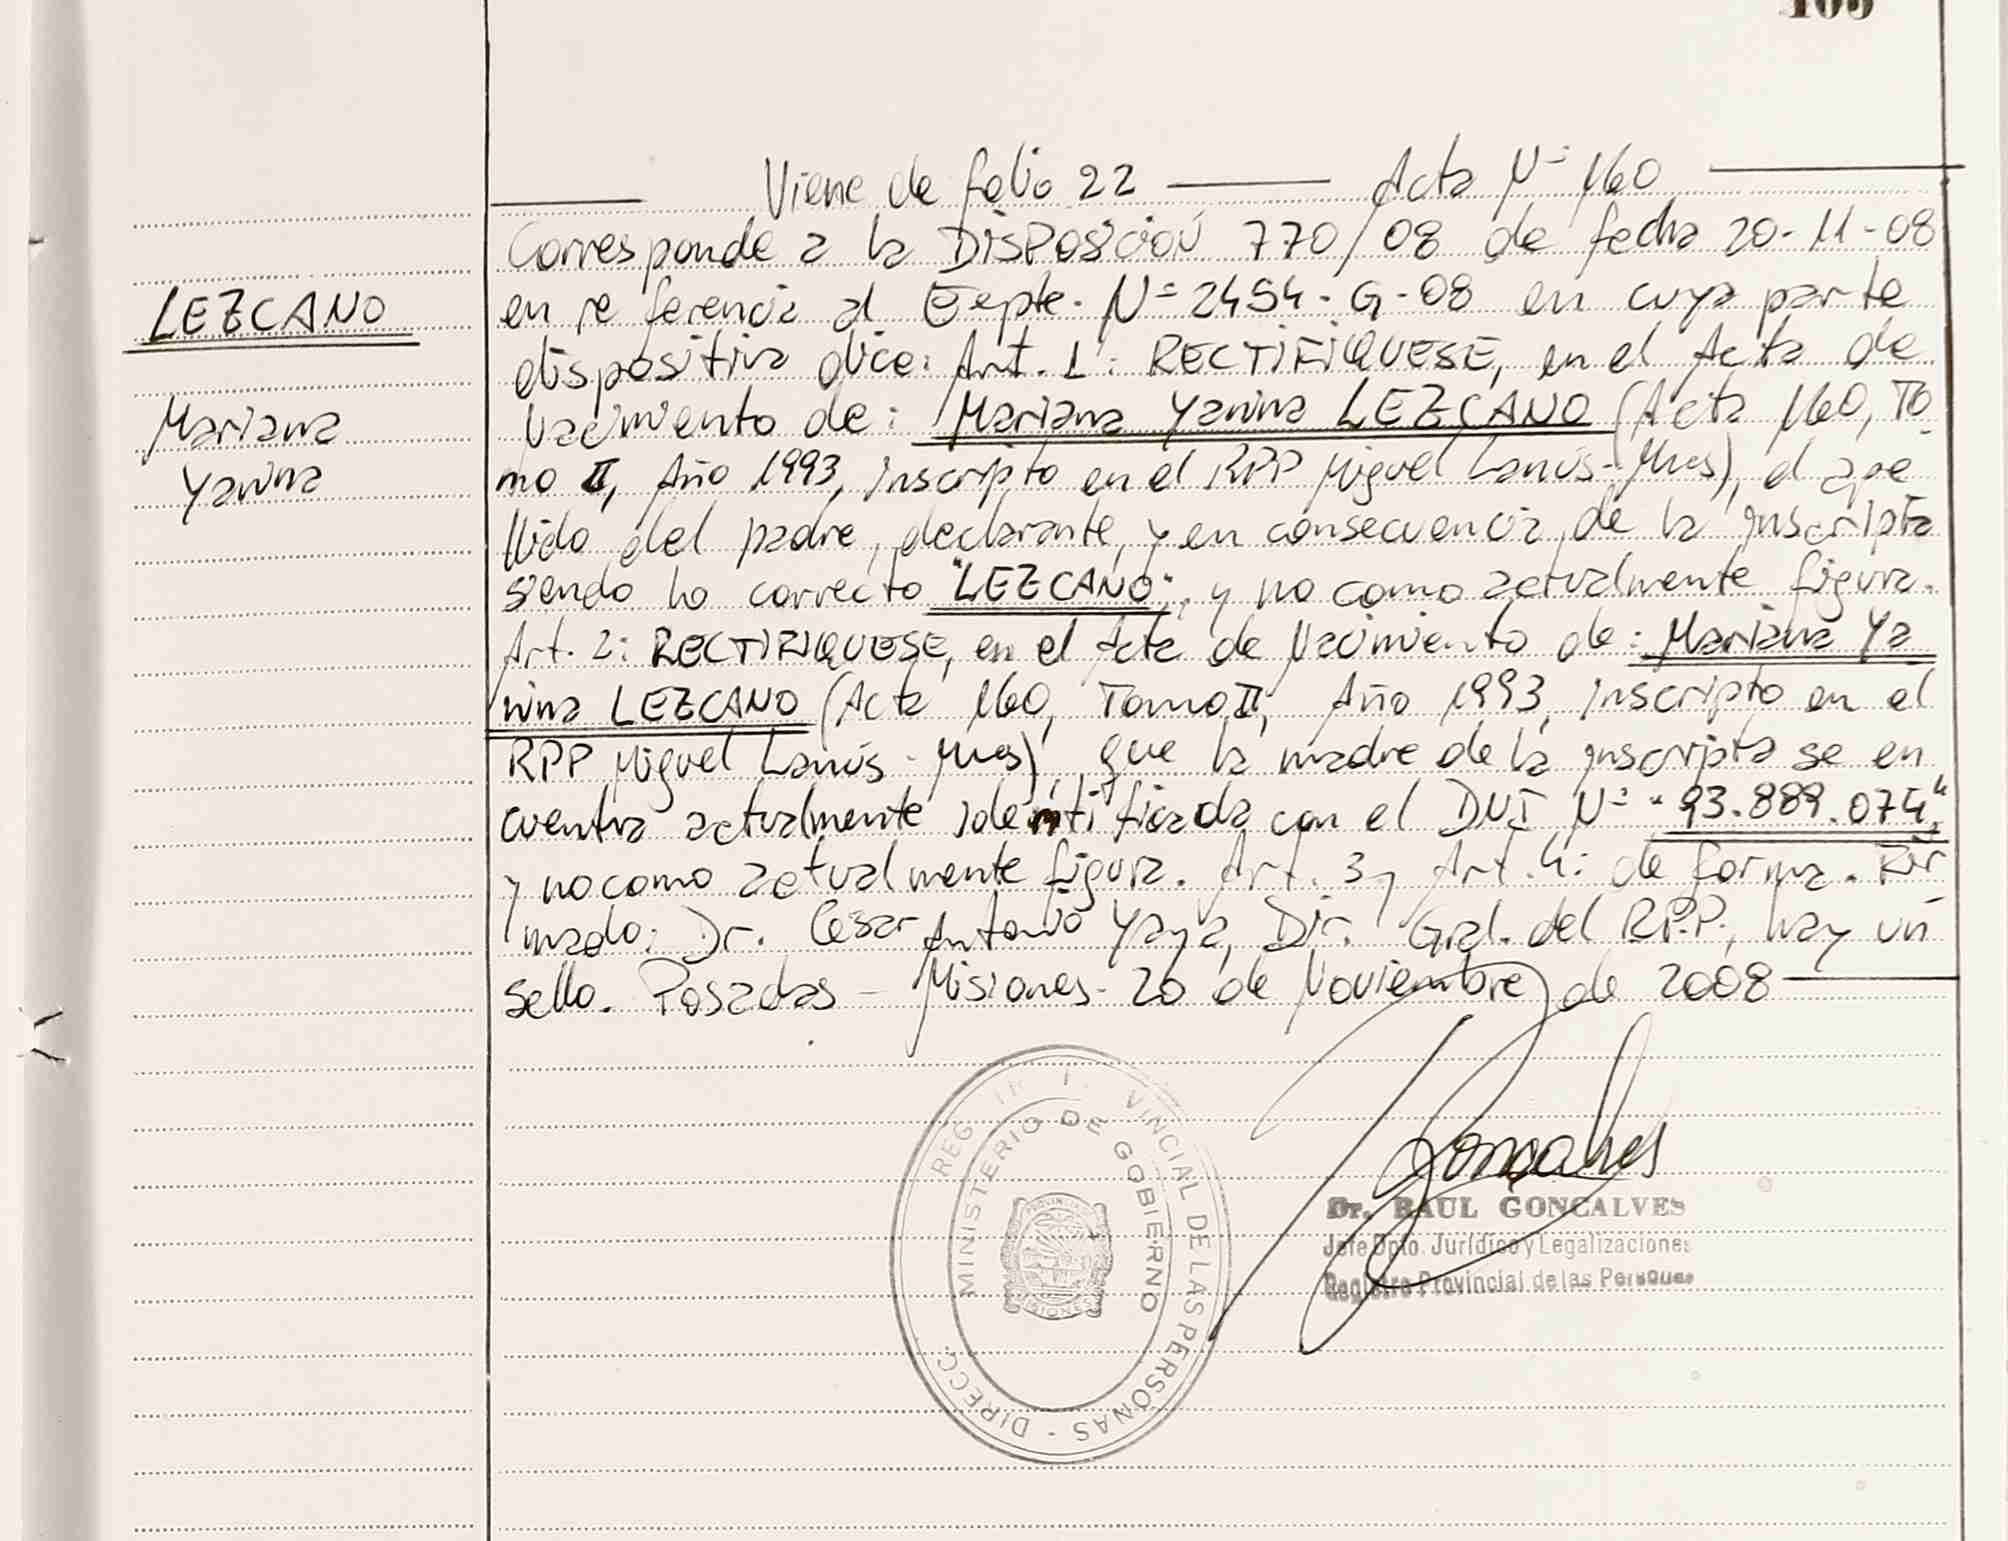 Viene de folio 22 — Acta Nº 160
LEZCANO
Mariana
Yanina
Corresponde a la DISPOSICIÓN 770/08 de fecha 20-11-08
en referencia al Expte. Nº 2454-G-08 en cuya parte
dispositiva dice: Art. 1: RECTIFIQUESE, en el Acta de
Nacimiento de: Mariana Yanina LEZCANO (Acta 160, To
mo II, Año 1993, Inscripto en el RPP Miguel Lanús-Mnes), el ape
llido del padre, declarante, y en consecuencia, de la inscripta
siendo lo correcto "LEZCANO", y no como actualmente figura.
Art. 2: RECTIFIQUESE, en el Acta de Nacimiento de: Mariana Ya
nina LEZCANO (Acta 160, Tomo II, Año 1993, Inscripto en el
RPP Miguel Lanús-Mnes), que la madre de la inscripta se en
cuentra actualmente identificada con el DNI Nº "93.889.074"
y no como actualmente figura. Art. 3 y Art. 4: de forma. Fir
mado: Dr. Cesar Antonio Yaya, Dir. Gral. del R.P.P., hay un
sello. Posadas - Misiones - 20 de Noviembre de 2008
VINCIAL DE LAS PERSONAS - DIRECC.
MINISTERIO DE GOBIERNO
Goncalves
Dr. RAUL GONCALVES
Jefe Dpto. Jurídico y Legalizaciones
Registro Provincial de las Personas